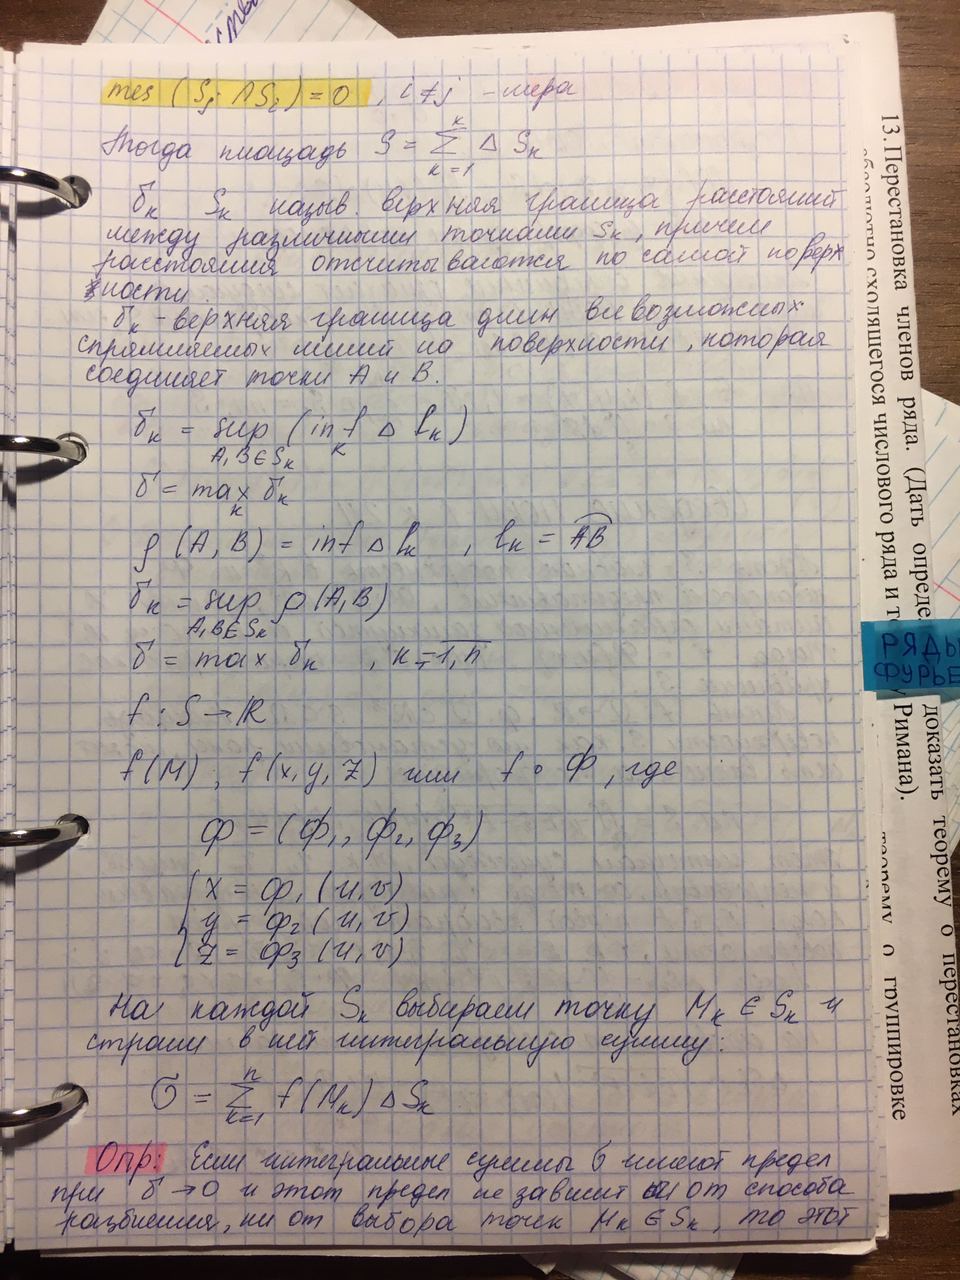 mes (Sj ∩ Si) = 0, i ≠ j - мера
Тогда площадь S = Σ Δ Sk
k
k = 1
δk Sk назыв. верхняя граница расстояний
между различными точками Sk, причём
расстояния отсчитываются по самой поверх
ности.
δk - верхняя граница длин всевозможных
спрямляемых линий на поверхности, которая
соединяет точки A и B.
δk = sup (inf Δ lk)
A, B ∈ Sk k
δ = max δk
k
ρ (A, B) = inf Δ lk , lk = AB
δk = sup ρ (A, B)
A, B ∈ Sk
δ = max δk , k = 1, n
f : S → R
f(M), f(x, y, z) или f ∘ Φ, где
φ = (φ1, φ2, φ3)
x = φ1 (u, v)
y = φ2 (u, v)
z = φ3 (u, v)
На каждой Sk выбираем точку Mk ∈ Sk и
строим в ней интегральную сумму:
n
σ = Σ f(Mk) Δ Sk
k=1
Опр: Если интегральные суммы σ имеют предел
при δ → 0 и этот предел не зависит ни от способа
разбиения, ни от выбора точек Mk ∈ Sk, то этот
13. Перестановка членов ряда. (Дать опреде
доказать теорему о перестановках
сходящегося числового ряда и
Римана).
теорему о группировке
РЯДЫ
ФУРЬЕ